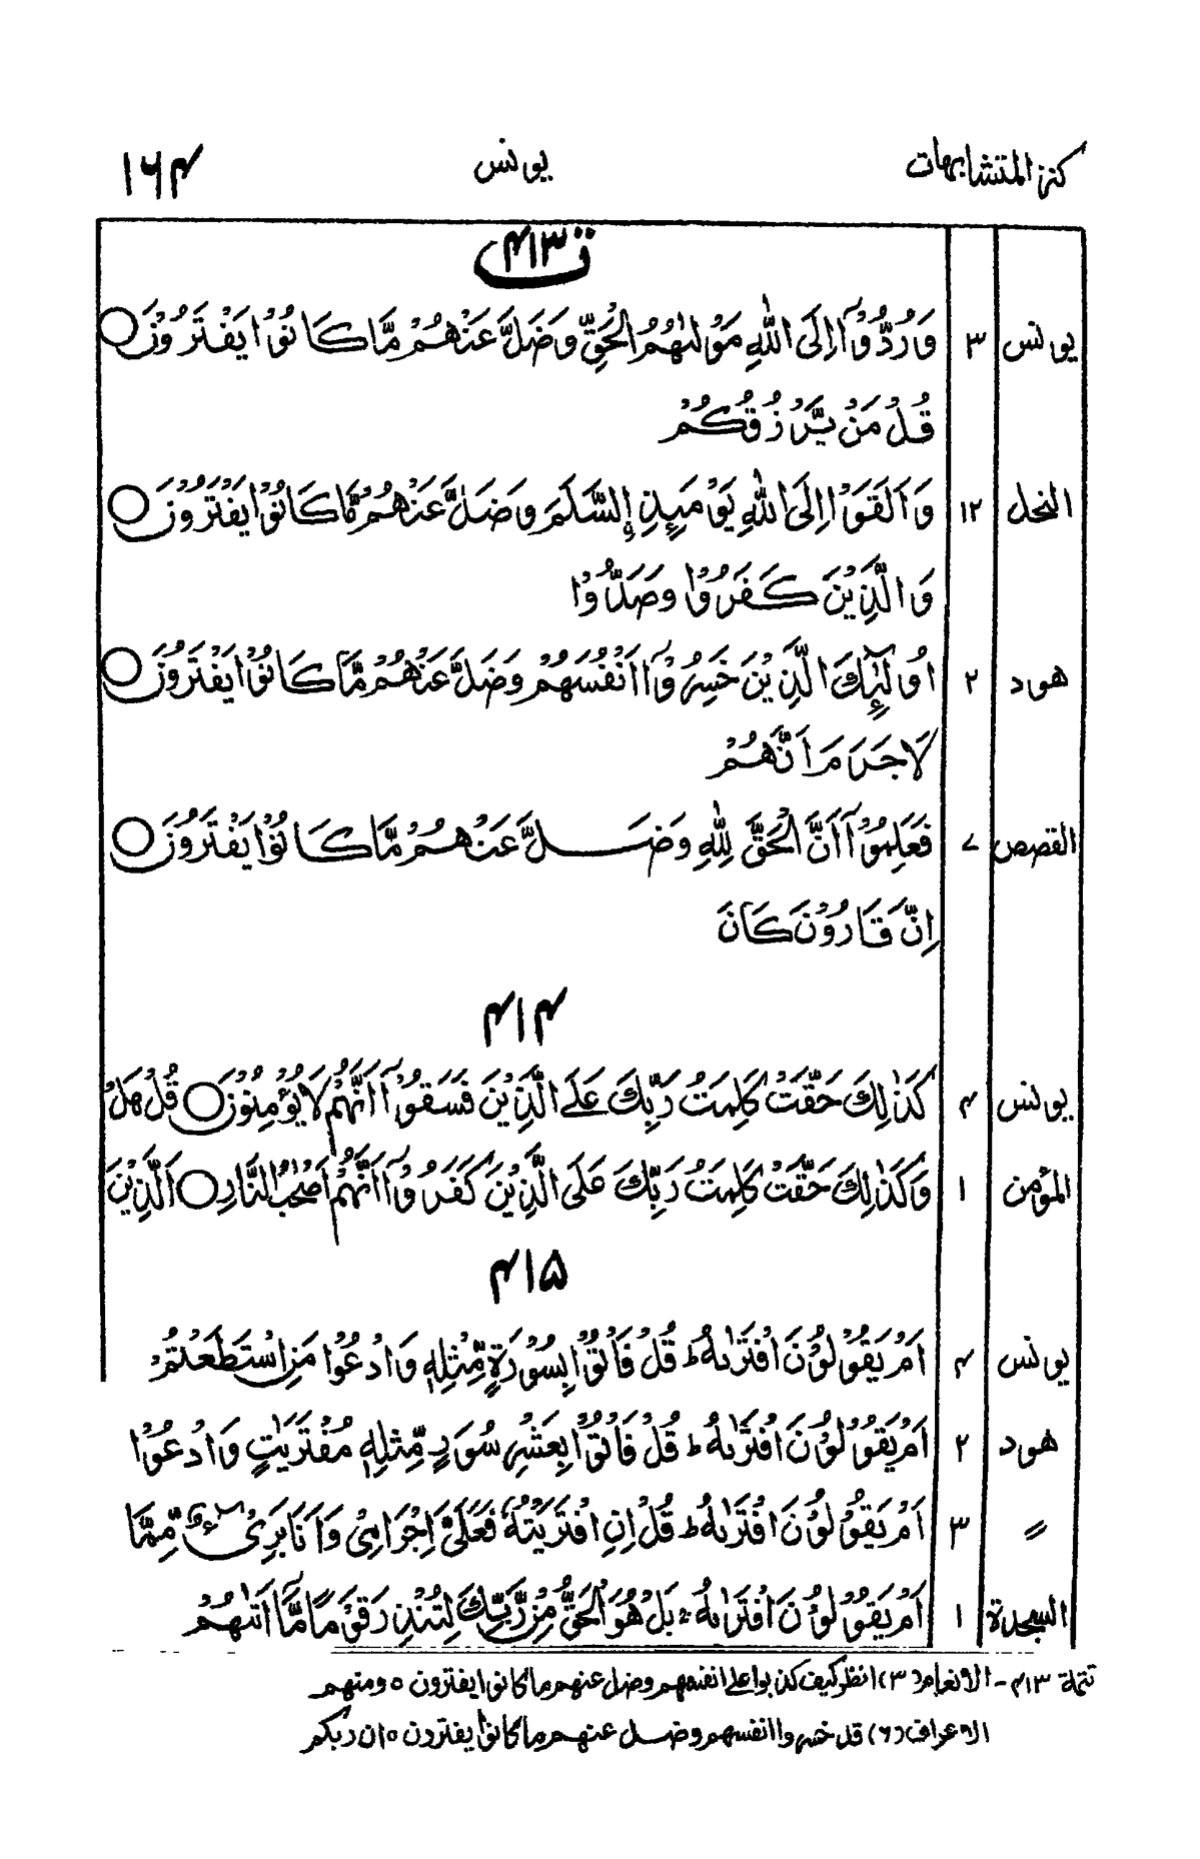 كنز المتشابهات يونس ۱۶۴
ت ۴۱۳
يونس ۳ وَرُدُّوْۤا اِلَى اللّٰهِ مَوْلٰىهُمُ الْحَقِّ وَضَلَّ عَنْهُمْ مَّا كَانُوْا يَفْتَرُوْنَ ○
قُلْ مَنْ يَّرْزُقُكُمْ
النحل ۱۲ وَاَلْقَوْا اِلَى اللّٰهِ يَوْمَىِٕذِ اِ۟لسَّلَمَ وَضَلَّ عَنْهُمْ مَّا كَانُوْا يَفْتَرُوْنَ ○
وَالَّذِيْنَ كَفَرُوْا وَصَدُّوْا
هود ۲ اُولٰٓىِٕكَ الَّذِيْنَ خَسِرُوْۤا اَنْفُسَهُمْ وَضَلَّ عَنْهُمْ مَّا كَانُوْا يَفْتَرُوْنَ ○
لَاجَرَمَ اَنَّهُمْ
القصص ۷ فَعَلِمُوْۤا اَنَّ الْحَقَّ لِلّٰهِ وَضَلَّ عَنْهُمْ مَّا كَانُوْا يَفْتَرُوْنَ ○
اِنَّ قَارُوْنَ كَانَ
۴۱۴
يونس ۴ كَذٰلِكَ حَقَّتْ كَلِمَتُ رَبِّكَ عَلَى الَّذِيْنَ فَسَقُوْۤا اَنَّهُمْ لَا يُؤْمِنُوْنَ ○ قُلْ هَلْ
المؤمن ۱ وَكَذٰلِكَ حَقَّتْ كَلِمَتُ رَبِّكَ عَلَى الَّذِيْنَ كَفَرُوْۤا اَنَّهُمْ اَصْحٰبُ النَّارِ ○ اَلَّذِيْنَ
۴۱۵
يونس ۴ اَمْ يَقُوْلُوْنَ افْتَرٰىهُ ط قُلْ فَاْتُوْا بِسُوْرَةٍ مِّثْلِهٖ وَادْعُوْا مَنِ اسْتَطَعْتُمْ
هود ۲ اَمْ يَقُوْلُوْنَ افْتَرٰىهُ ط قُلْ فَاْتُوْا بِعَشْرِ سُوَرٍ مِّثْلِهٖ مُفْتَرَيٰتٍ وَادْعُوْا
〃 ۳ اَمْ يَقُوْلُوْنَ افْتَرٰىهُ ط قُلْ اِنِ افْتَرَيْتُهٗ فَعَلَيَّ اِجْرَامِيْ وَاَنَا بَرِيْٓءٌ مِّمَّا
السجدة ۱ اَمْ يَقُوْلُوْنَ افْتَرٰىهُ ۚ بَلْ هُوَ الْحَقُّ مِنْ رَّبِّكَ لِتُنْذِرَ قَوْمًا مَّاۤ اَتٰىهُمْ
تتمة ۴۱۳ - الانعام (۳) انظر كيف كذبوا على انفسهم وضل عنهم ما كانوا يفترون ○ ومنهم
الاعراف (۶) قد خسروا انفسهم وضل عنهم ما كانوا يفترون ○ ان ربكم